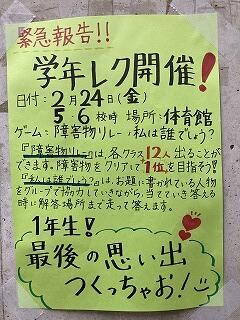 緊急報告!!
学年レク開催!
日付:2月24日(金)
5・6校時 場所:体育館
ゲーム:障害物リレー・私は誰でしょう?
『障害物リレー』は、各クラス12人出ることが
できます。障害物をクリアして1位を目指そう!!
『私は誰でしょう?』は、お題に書かれている人物
をグループで協力していきながら、当てていき答える
時に解答場所まで走って答えます。
1年生!
最後の思い出
つくっちゃお!